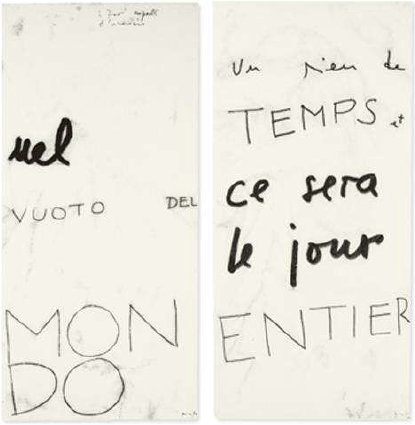 nel
VUOTO DEL
MON
DO
Un rien de
TEMPS et
ce sera
le jour
ENTIER